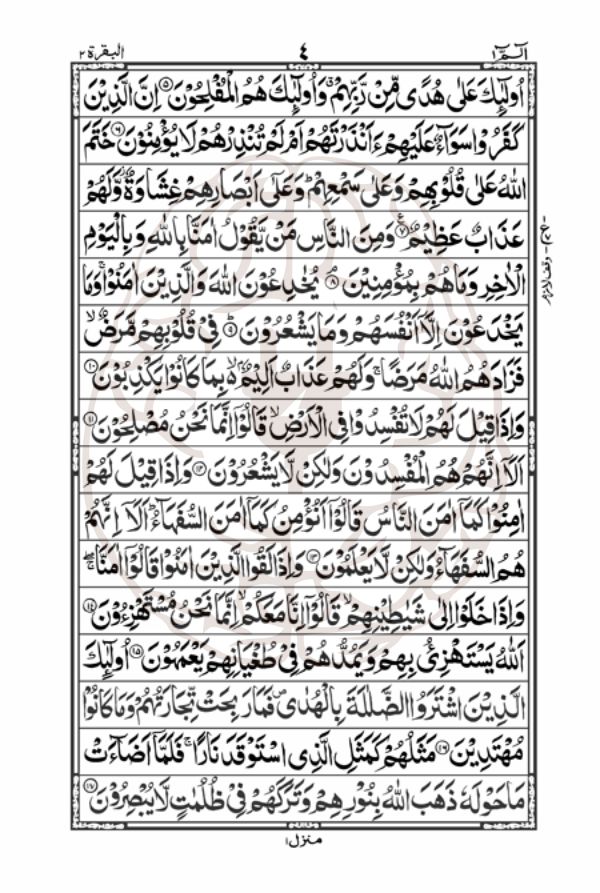 الٓمّٓ ۱ ٤ البقرة ۲
اُولٰٓئِكَ عَلٰى هُدًى مِّنْ رَّبِّهِمْ ۗ وَاُولٰٓئِكَ هُمُ الْمُفْلِحُوْنَ ۝۵ اِنَّ الَّذِيْنَ
كَفَرُوْا سَوَآءٌ عَلَيْهِمْ ءَاَنْذَرْتَهُمْ اَمْ لَمْ تُنْذِرْهُمْ لَا يُؤْمِنُوْنَ ۝۶ خَتَمَ
اللّٰهُ عَلٰى قُلُوْبِهِمْ وَعَلٰى سَمْعِهِمْ ؕ وَعَلٰٓى اَبْصَارِهِمْ غِشَاوَةٌ ؗ وَّلَهُمْ
عَذَابٌ عَظِيْمٌ ۝۷ وَمِنَ النَّاسِ مَنْ يَّقُوْلُ اٰمَنَّا بِاللّٰهِ وَبِالْيَوْمِ
الْاٰخِرِ وَمَا هُمْ بِمُؤْمِنِيْنَ ۝۸ يُخٰدِعُوْنَ اللّٰهَ وَالَّذِيْنَ اٰمَنُوْا ۚ وَمَا
يَخْدَعُوْنَ اِلَّاۤ اَنْفُسَهُمْ وَمَا يَشْعُرُوْنَ ۝۹ فِىْ قُلُوْبِهِمْ مَّرَضٌ ۙ
فَزَادَهُمُ اللّٰهُ مَرَضًا ۚ وَلَهُمْ عَذَابٌ اَلِيْمٌ ۢ ۙ بِمَا كَانُوْا يَكْذِبُوْنَ ۝۱۰
وَاِذَا قِيْلَ لَهُمْ لَا تُفْسِدُوْا فِى الْاَرْضِ ۙ قَالُوْۤا اِنَّمَا نَحْنُ مُصْلِحُوْنَ ۝۱۱
اَلَاۤ اِنَّهُمْ هُمُ الْمُفْسِدُوْنَ وَلٰكِنْ لَّا يَشْعُرُوْنَ ۝۱۲ وَاِذَا قِيْلَ لَهُمْ
اٰمِنُوْا كَمَاۤ اٰمَنَ النَّاسُ قَالُوْۤا اَنُؤْمِنُ كَمَاۤ اٰمَنَ السُّفَهَآءُ ؕ اَلَاۤ اِنَّهُمْ
هُمُ السُّفَهَآءُ وَلٰكِنْ لَّا يَعْلَمُوْنَ ۝۱۳ وَاِذَا لَقُوا الَّذِيْنَ اٰمَنُوْا قَالُوْۤا اٰمَنَّا ۖۚ
وَاِذَا خَلَوْا اِلٰى شَيٰطِيْنِهِمْ ۙ قَالُوْۤا اِنَّا مَعَكُمْ ۙ اِنَّمَا نَحْنُ مُسْتَهْزِءُوْنَ ۝۱۴
اَللّٰهُ يَسْتَهْزِئُ بِهِمْ وَيَمُدُّهُمْ فِىْ طُغْيَانِهِمْ يَعْمَهُوْنَ ۝۱۵ اُولٰٓئِكَ
الَّذِيْنَ اشْتَرَوُا الضَّلٰلَةَ بِالْهُدٰى ۪ فَمَا رَبِحَتْ تِّجَارَتُهُمْ وَمَا كَانُوْا
مُهْتَدِيْنَ ۝۱۶ مَثَلُهُمْ كَمَثَلِ الَّذِى اسْتَوْقَدَ نَارًا ۚ فَلَمَّاۤ اَضَآءَتْ
مَا حَوْلَهٗ ذَهَبَ اللّٰهُ بِنُوْرِهِمْ وَتَرَكَهُمْ فِىْ ظُلُمٰتٍ لَّا يُبْصِرُوْنَ ۝۱۷
وقف لازم
منزل ۱